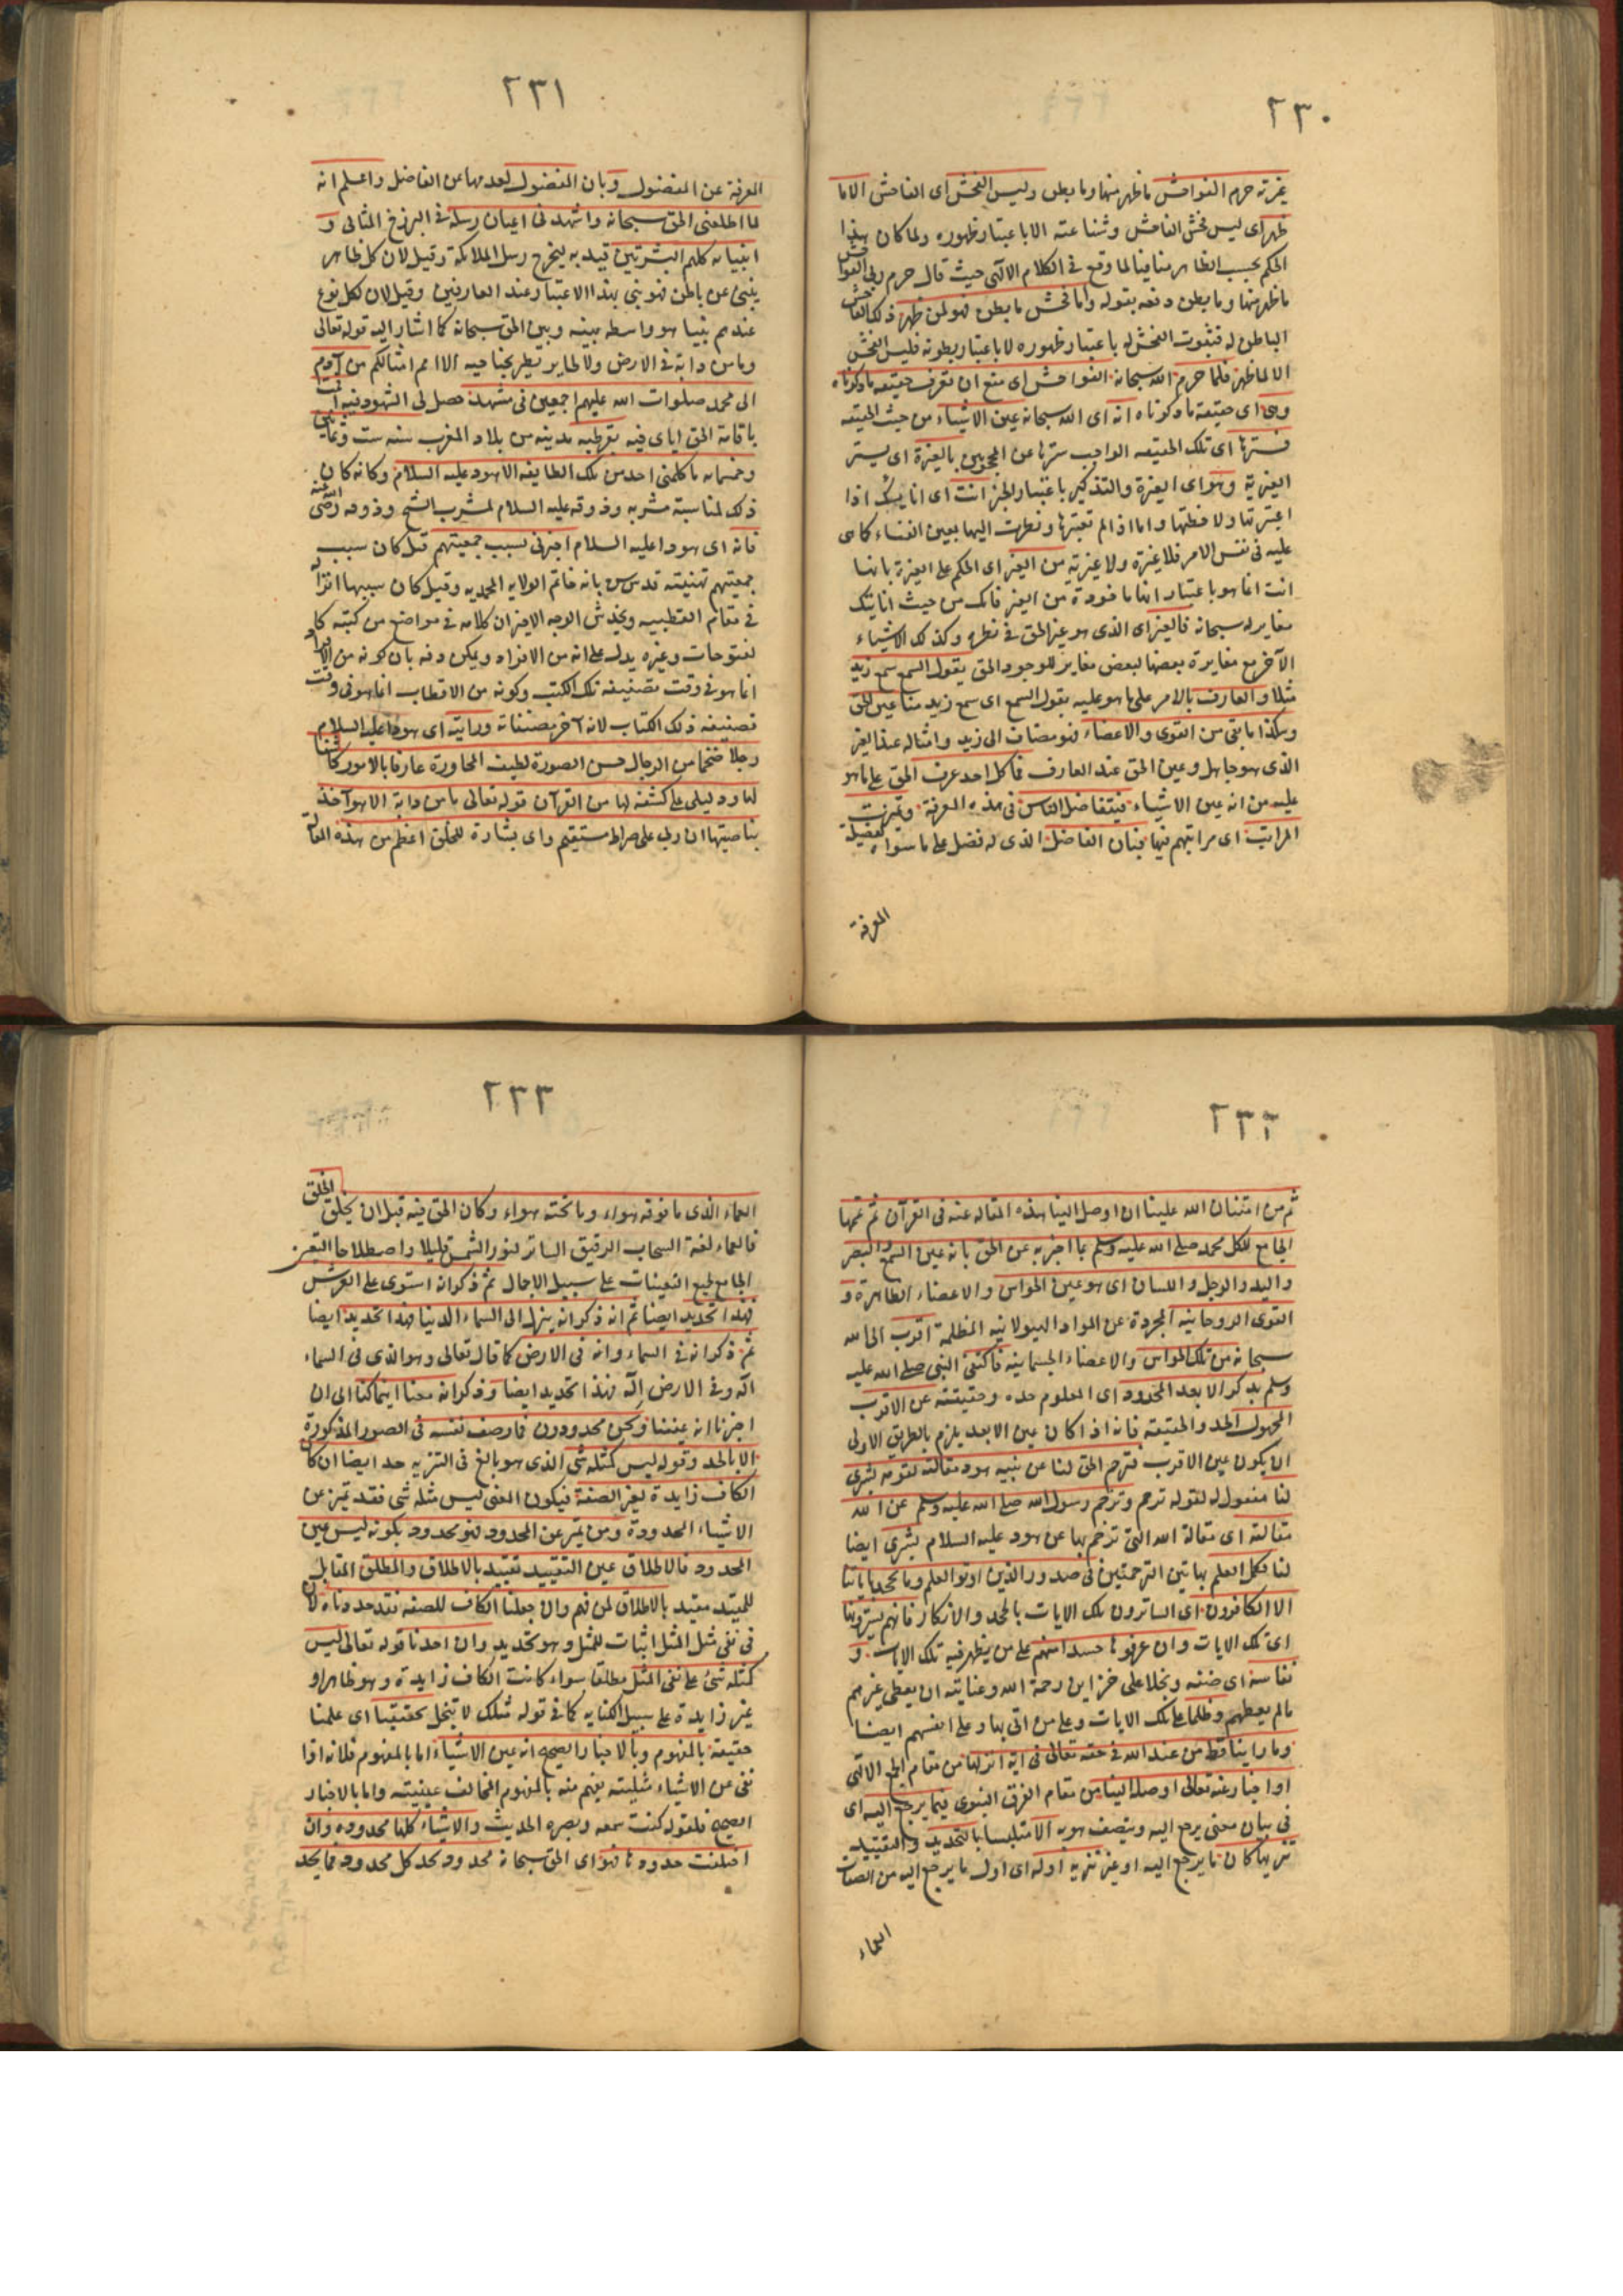 ٢٣٠
غيرته حرم الفواحش ما ظهر منها وما بطن وليس الفحش اى الفاحش الا ما
ظهر اى ليس فحش الفاحش وشناعته الا باعتبار ظهوره ولما كان هذا
الحكم بحسب الظاهر منافيا لما وقع فى الكلام الالهى حيث قال حرم ربى الفواحش
ما ظهر منها وما بطن دفعه بقوله واما فحش ما بطن فهو لمن ظهر ذلك الفاحش
الباطن له فثبوت الفحش له باعتبار ظهوره لا باعتبار بطونه فليس الفحش
الا لما ظهر فلما حرم الله سبحانه الفواحش اى منع ان تعرف حقيقه ما ذكرناه
وهى اى حقيقة ما ذكرناه انه اى الله سبحانه عين الاشياء من حيث الحقيقه
فسترها اى تلك الحقيقه الواجب سترها عن المحجوبين بالغيرة اى يستر
الغيرية وهو اى الغيرة والتذكير باعتبار الخبر انت اى انانيتك اذا
اعتبرتها ولاحظتها واما اذا لم تعتبرها ونظرت اليها بعين الفناء كما هى
عليه فى نفس الامر فلا غيرة ولا غيرية من الغير اى الحكم على الغيرة بانها
انت انما هو باعتبار انها ماخوذة من الغير فانك من حيث انانيتك
مغاير له سبحانه فالغير اى الذى هو غير الحق فى نظره وكذلك الاشياء
الآخر مع مغايرة بعضها لبعض مغاير للوجود الحق يقول السمع سمع زيد
مثلا والعارف بالامر على ما هو عليه يقول السمع اى سمع زيد مثلا عين الحق
وهكذا ما بقى من القوى والاعضاء فهو مضاف الى زيد وامثاله عند الغير
الذى هو جاهل وعين الحق عند العارف فما كل احد عرف الحق على ما هو
عليه من انه عين الاشياء فيتفاضل الناس فى هذه المعرفة وتميزت
المراتب اى مراتبهم فيها فبان الفاضل الذى له فضل على ما سواه بفضيلة
المعرفة
٢٣١
المعرفة عن المفضول وبان المفضول لعدمها عن الفاضل واعلم انه
لما اطلعنى الحق سبحانه واشهدنى اعيان رسله فى البرزخ المثالى و
انبيائه كلهم البشريين قيد به ليخرج رسل الملائكة وقيل لان كل ظاهر
ينبئ عن باطن فهو نبى بهذا الاعتبار عند العارفين وقيل لان لكل نوع
عندهم نبيا هو واسطه بينه وبين الحق سبحانه كما اشار اليه قوله تعالى
وما من دابة فى الارض ولا طاير يطير بجناحيه الا امم امثالكم من آدم
الى محمد صلوات الله عليهم اجمعين فى مشهد حصل لى الشهود فيه
باقامة الحق اياى فيه بقرطبه مدينه من بلاد المغرب سنه ست وثمانين
وخمسمايه ما كلمنى احد من تلك الطايفه الا هود عليه السلام وكانه كان
ذلك لمناسبة مشربه وذوقه عليه السلام لمشرب الشيخ وذوقه رضى الله عنه
فانه اى هودا عليه السلام اخبرنى بسبب جمعيتهم قيل كان سبب
جمعيتهم تهنيته قدس سره بانه خاتم الولايه المحمديه وقيل كان سببها انزاله
فى مقام القطبيه ويخدش الوجه الاخير ان كلامه فى مواضع من كتبه كا
لفتوحات وغيره يدل على انه من الافراد ويمكن دفعه بان كونه من الافراد
انما هو فى وقت تصنيفه تلك الكتب وكونه من الاقطاب انما هو فى وقت
تصنيفه ذلك الكتاب لانه آخر مصنفاته ورايته اى هودا عليه السلام
رجلا ضخما من الرجال حسن الصورة لطيف المحاورة عارفا بالامور كاشفا
لها ودليلى على كشفه لها من القرآن قوله تعالى ما من دابة الا هو آخذ
بناصيتها ان ربى على صراط مستقيم واى بشارة للخلق اعظم من هذه المقالة
٢٣٢
ثم من امتنان الله علينا ان اوصل الينا هذه المقاله عنه فى القرآن ثم تممها
الجامع للكل محمد صلى الله عليه وسلم بما اخبر به عن الحق بانه عين السمع والبصر
واليد والرجل واللسان اى هو عين الحواس والاعضاء الظاهرة و
القوى الروحانيه المجردة عن المواد الهيولانيه المظلمة اقرب الى الله
سبحانه من تلك الحواس والاعضاء الجسمانيه فاكتفى النبى صلى الله عليه
وسلم بذكر الابعد المحدود اى المعلوم حده وحقيقته عن الاقرب
المجهول الحد والحقيقه فانه اذا كان عين الابعد يلزم بالطريق الاولى
ان يكون عين الاقرب فترجم الحق لنا عن نبيه هود مقالته لقومه بشرى
لنا مفعول له لقوله ترجم وترجم رسول الله صلى الله عليه وسلم عن الله
مقالته اى مقالة الله التى ترجم بها عن هود عليه السلام بشرى ايضا
لنا فكمل العلم بهاتين الترجمتين فى صدور الذين اوتوا العلم وما يجحد باياتنا
الا الكافرون اى الساترون تلك الايات بالجحد والانكار فانهم يسترونها
اى تلك الايات وان عرفوها حسدا منهم على من يظهر فيه تلك الايات و
نفاسة اى ضنه وبخلا على خزاين رحمة الله وعنايته ان يعطى غيرهم
ما لم يعطهم وظلما على تلك الايات وعلى من اتى بها وعلى انفسهم ايضا
وما راينا قط من عند الله فى حقه تعالى فى آية انزلها من مقام الجمع الالهى
او اخبار عنه تعالى اوصله الينا من مقام الفرق النبوى فيما يرجع اليه اى
فى بيان معنى يرجع اليه ويتصف هو به الا متلبسا بالتحديد والتقييد
تنزيها كان ما يرجع اليه او غير تنزيه اوله اى اول ما يرجع اليه من الصفات
العماء
٢٣٣
العماء الذى ما فوقه هواء وما تحته هواء وكان الحق فيه قبل ان يخلق الخلق
فالعماء لغة السحاب الرقيق الساتر لنور الشمس قليلا واصطلاحا التعين
الجامع لجميع التعينات على سبيل الاجمال ثم ذكر انه استوى على العرش
فهذا تحديد ايضا ثم انه ذكر انه ينزل الى السماء الدنيا فهذا تحديد ايضا
ثم ذكر انه فى السماء وانه فى الارض كما قال تعالى وهو الذى فى السماء
اله وفى الارض اله فهذا تحديد ايضا وذكر انه معنا اينما كنا الى ان
اخبرنا انه عيننا ونحن محدودون فما وصف نفسه فى الصور المذكورة
الا بالحد وقوله ليس كمثله شئ الذى هو بالغ فى التنزيه حد ايضا ان كان
الكاف زايدة لغير الصفة فيكون المعنى ليس مثله شى فقد تميز عن
الاشياء المحدودة ومن تميز عن المحدود فهو محدود بكونه ليس عين
المحدود فالاطلاق عين التقييد تقييد بالاطلاق والمطلق المقابل
للمقيد مقيد بالاطلاق لمن فهم وان جعلنا الكاف للصفه فقد حددناه لان
فى نفى مثل المثل اثبات للمثل وهو تحديد وان اخذنا قوله تعالى ليس
كمثله شئ على نفى المثل مطلقا سواء كانت الكاف زايدة وهو ظاهر او
غير زايدة على سبيل الكنايه كما فى قوله مثلك لا يبخل تحققنا اى علمنا
حقيقة بالمفهوم وبالاخبار الصحيح انه عين الاشياء اما بالمفهوم فلانه اذا
نفى عن الاشياء مثليته يفهم منه بالمفهوم المخالف عينيته واما بالاخبار
الصحيح فلقوله كنت سمعه وبصره الحديث والاشياء كلها محدوده وان
اختلفت حدودها فهو اى الحق سبحانه محدود بحد كل محدود فما يحد